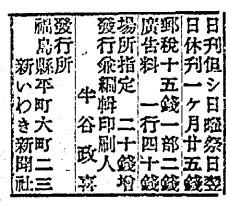 日刊但シ日曜祭日翌
日休刊一ヶ月廿五錢
郵税十五錢一部二錢
廣告料　一行四十錢
場所指定　二十錢增
發行兼編輯印刷人
牛谷政喜
發行所
福島縣平町大町二三
新いわき新聞社